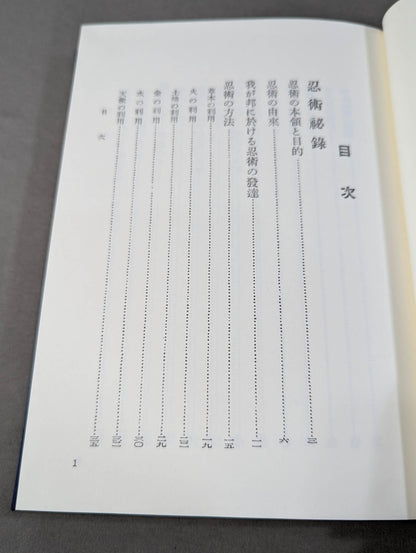 目次
忍術祕錄
忍術の本領と目的……三
忍術の由來……六
我が邦に於ける忍術の發達……一一
忍術の方法……一五
草木の利用……一九
火の利用……
土地の利用……
金の利用……二九
水の利用……三〇
天象の利用……
目次
1